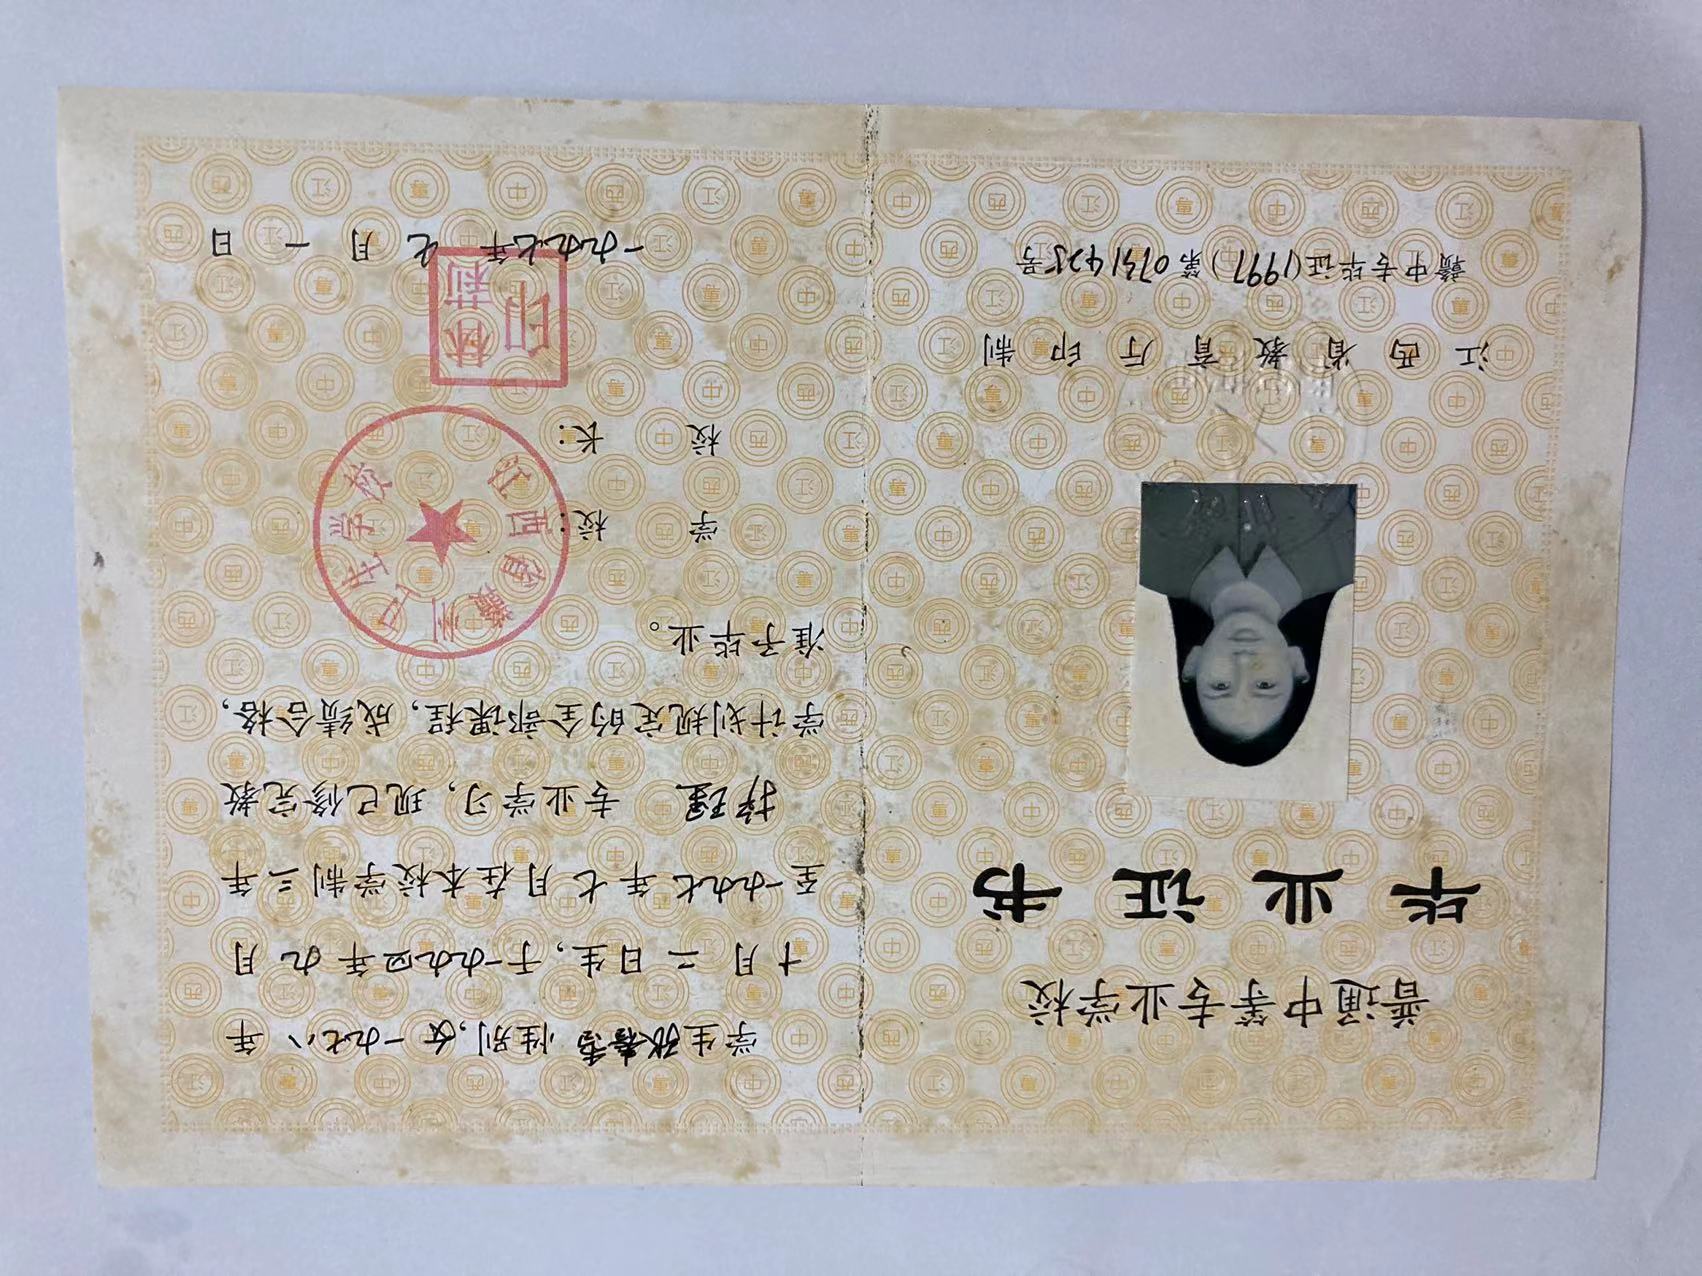 普通中等专业学校
毕业证书
江西省教育厅印制
赣中专毕证(1997)第0731425号
学生 性别,女 一九七八年
十月二日生,于一九九四年九月
至一九九七年七月在本校学制三年
护理 专业学习,现已修完教
学计划规定的全部课程,成绩合格,
准予毕业。
学校:
校长:
江西省赣州卫生学校
林莉印
一九九七年七月一日